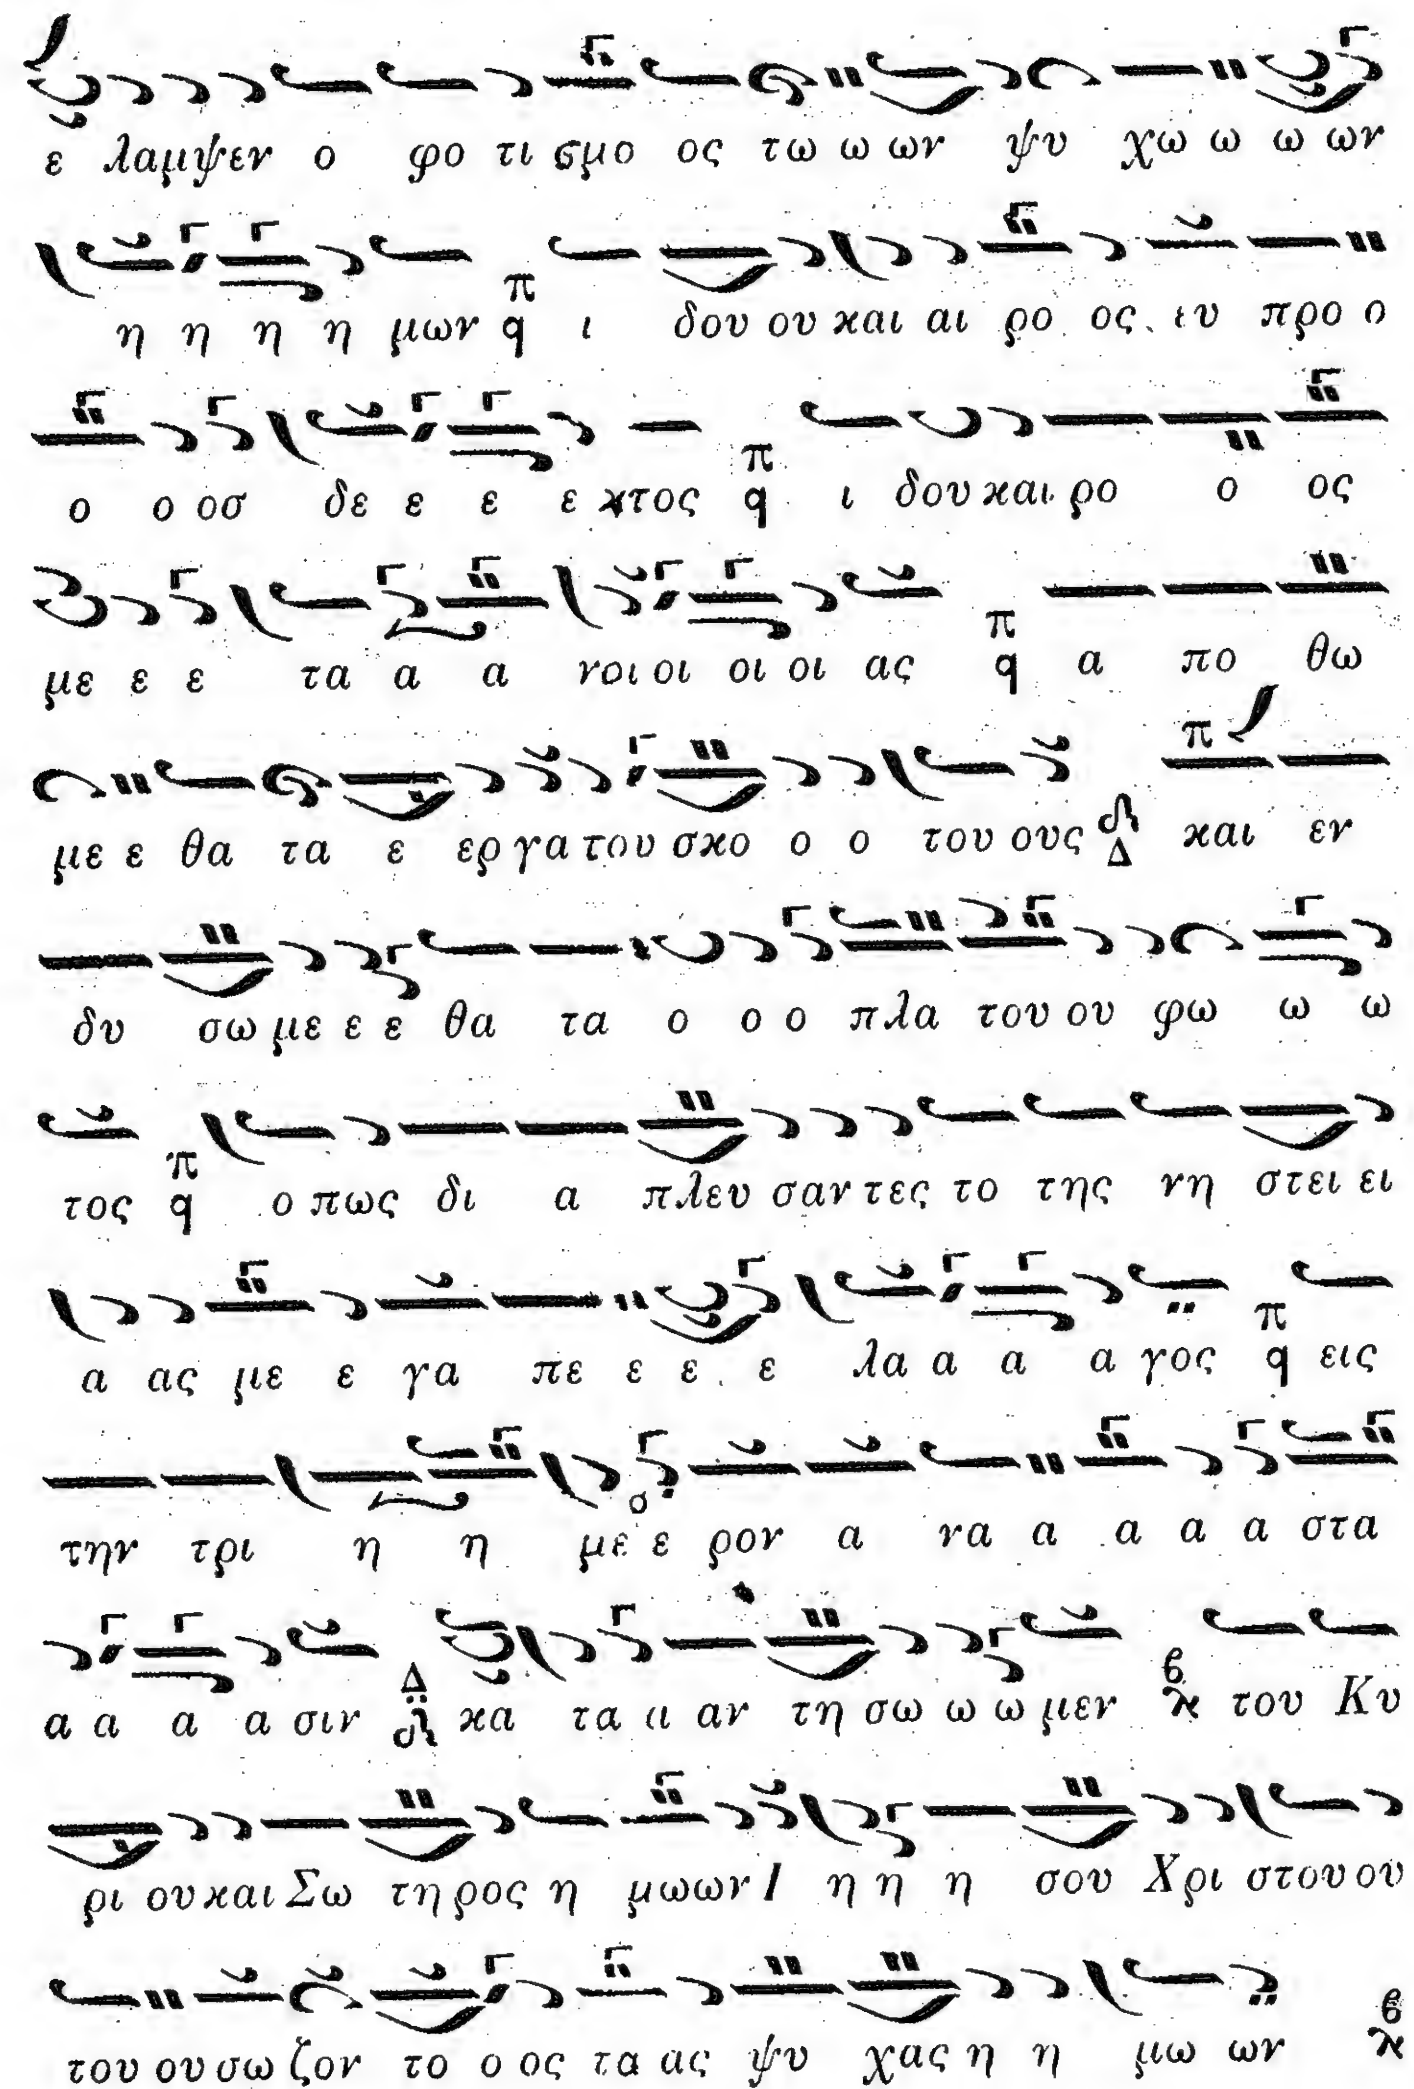 ε λαμψεν ο φο τι σμο ος τω ω ων ψυ χω ω ω ων
η η η η μων π q ι δου ου και αι ρο ος ευ προ ο
ο ο οσ δε ε ε ε κτος π q ι δου και ρο ο ος
με ε ε τα α α νοι οι οι οι ας π q α πο θω
με ε θα τα ε ερ γα του σκο ο ο του ους Δ π και εν
δυ σω με ε ε θα τα ο ο ο πλα του ου φω ω ω
τος π q ο πως δι α πλευ σαν τες το της νη στει ει
α ας με ε γα πε ε ε ε λα α α α γος π q εις
την τρι η η με ε ρον α να α α α α στα
α α α α σιν Δ κα τα α αν τη σω ω ω μεν β του Κυ
ρι ου και Σω τη ρος η μω ων Ι η η η σου Χρι στου ου
του ου σω ζον το ο ος τα ας ψυ χας η η μω ων β